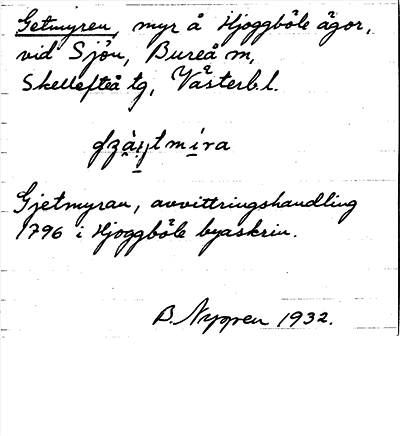 Getmyren, myr å Hjoggböle ägor,
vid Sjön, Bureå sn,
Skellefteå tg, Västerb. l.
Gjetmyran, avvittringshandling
1796 i Hjoggböle byaskrin.
B. Nygren 1932.